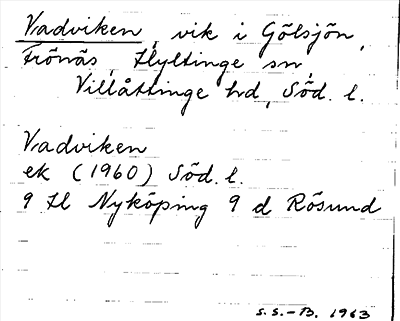 Vadviken, vik i Gölsjön,
Frönäs, Hyltinge sn,
Villåttinge hd, Söd. l.
Vadviken
ek (1960) Söd. l.
9 H Nyköping 9 d Rösund
S.S.-B. 1963